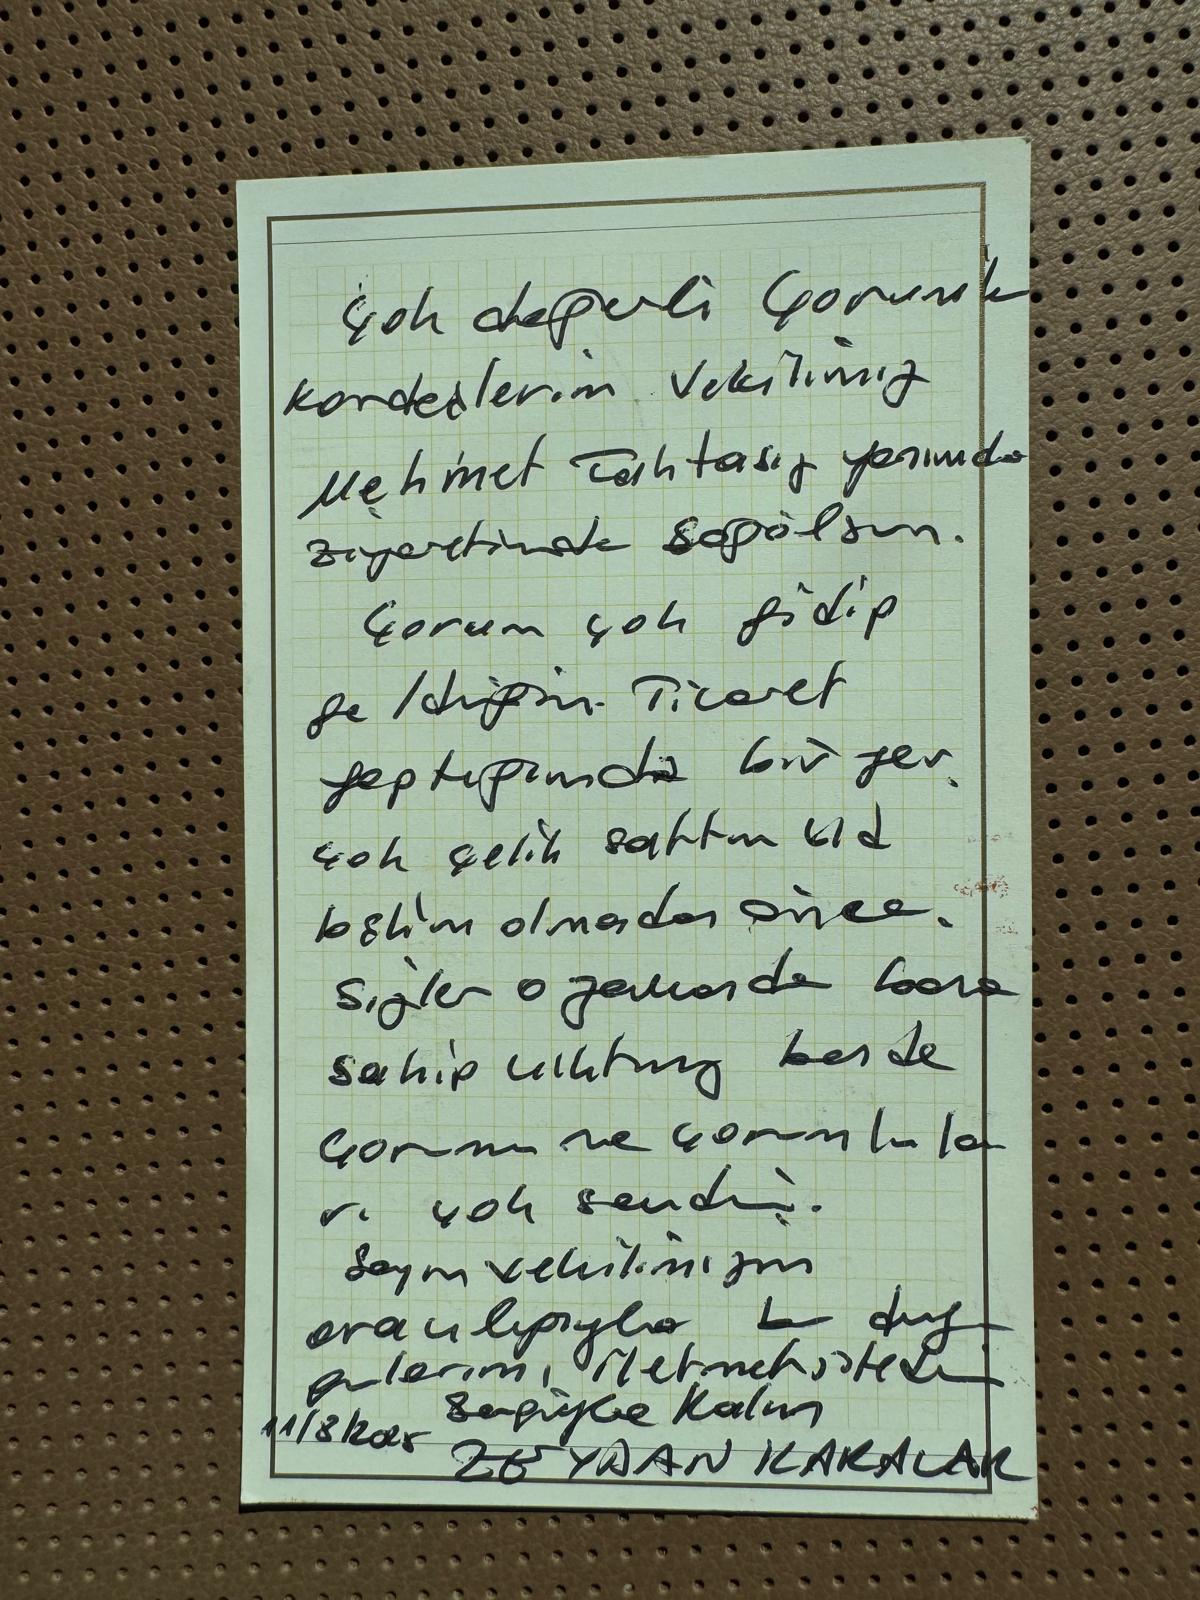 Çok değerli Çorumlu
kardeşlerim Vekilimiz
Mehmet Tahtasız yanımda
ziyaretimde sağolsun.
Çorum çok gidip
geldiğim. Ticaret
yaptığımda bir yer.
çok çelik sattım bld
bşkim olmadan önce.
Sizler o zamanda bana
sahip çıktınız bende
Çorumu ve çorumlula
rı çok sevdim.
Sayın vekilimizin
aracılığıyla bu duy
gularımı iletmek istedim
Sağlıcakla Kalın
11/8/2025
ZEYDAN KARALAR